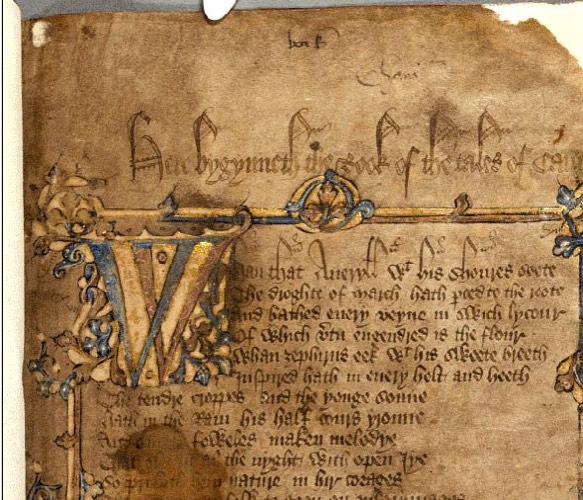 Here bygynneth the Book of the tales of Cau
Whan that Aueryłł wt his shoures soote
The droghte of march hath perced to the roote
And bathed euery veyne in swich lycour
Of which vertu engendred is the flour
Whan zephirus eek wt his swete breeth
Inspired hath in euery holt and heeth
The tendre croppes and the yonge sonne
Hath in the Ram his half cours yronne
And foweles maken melodye
That al the nyght with open Iye
So priketh hem nature in hir corages
to goon on pilgrymages